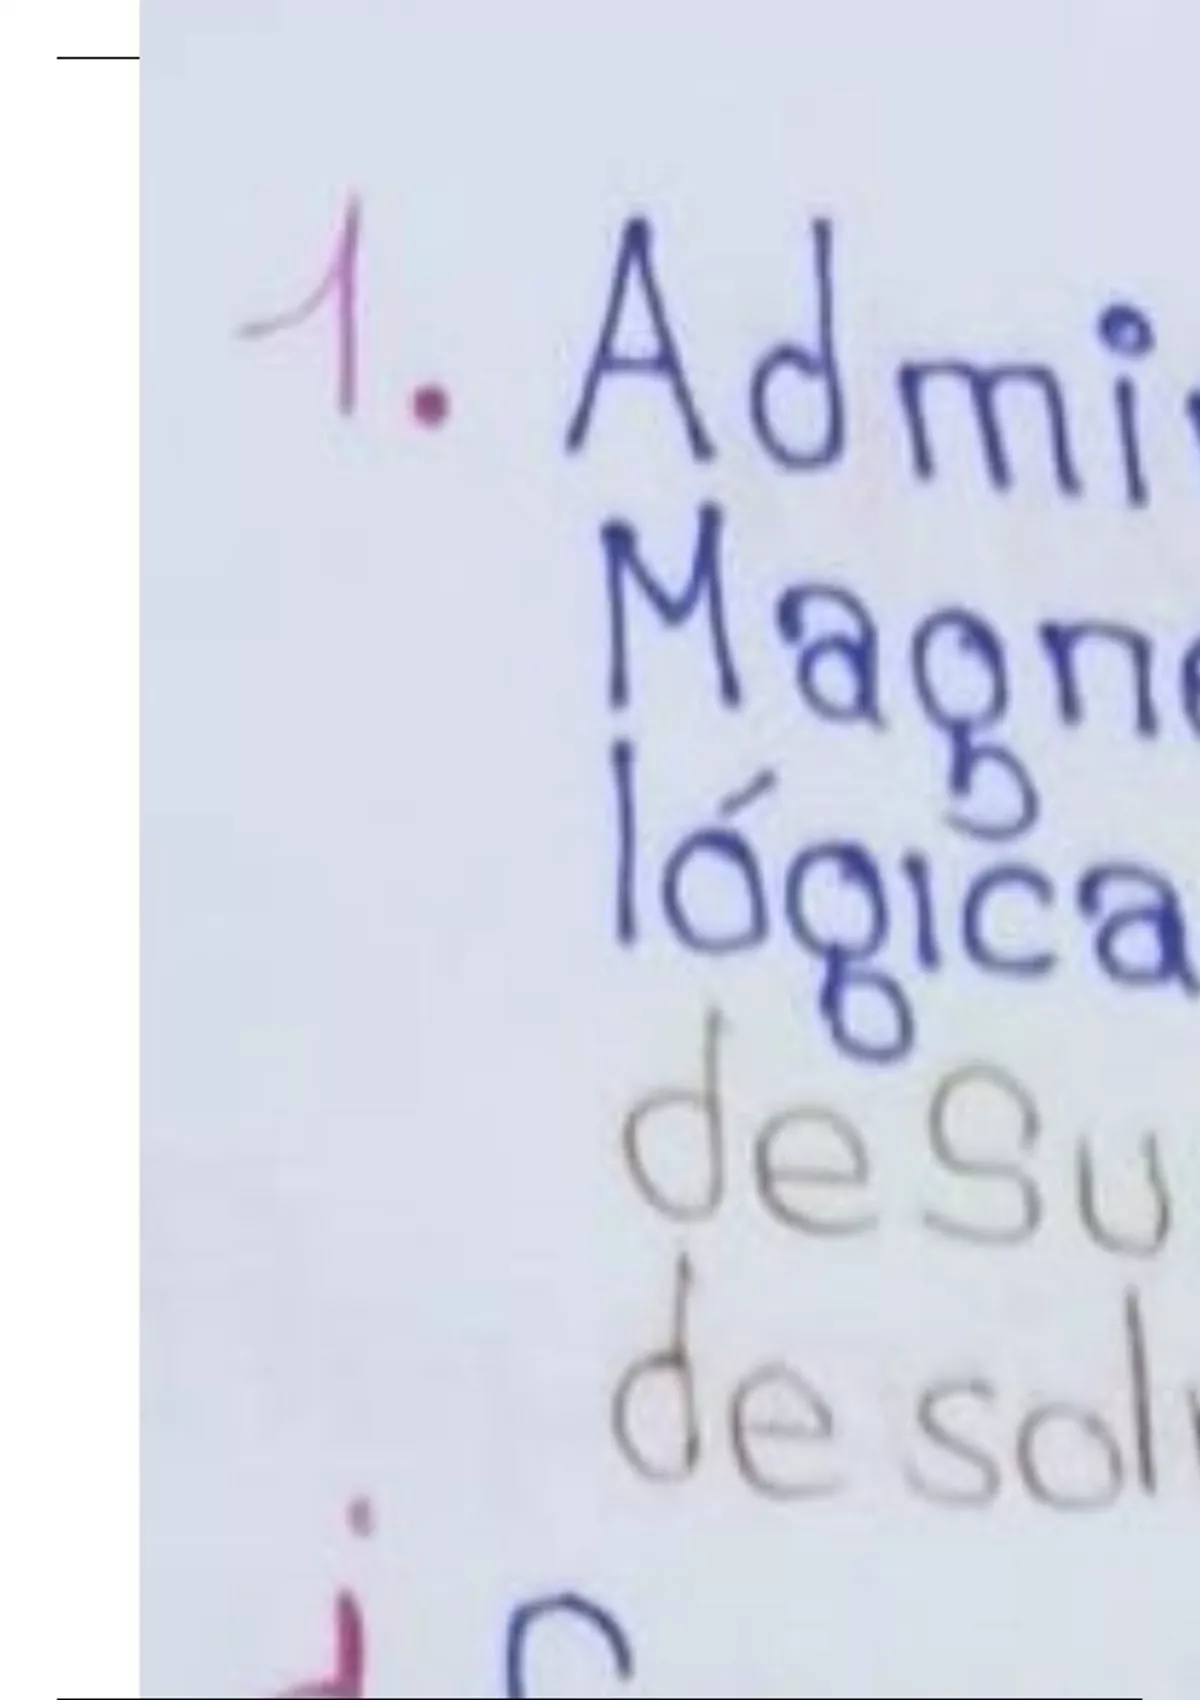 1. Admi
Magne
lógica
de Su
de sol